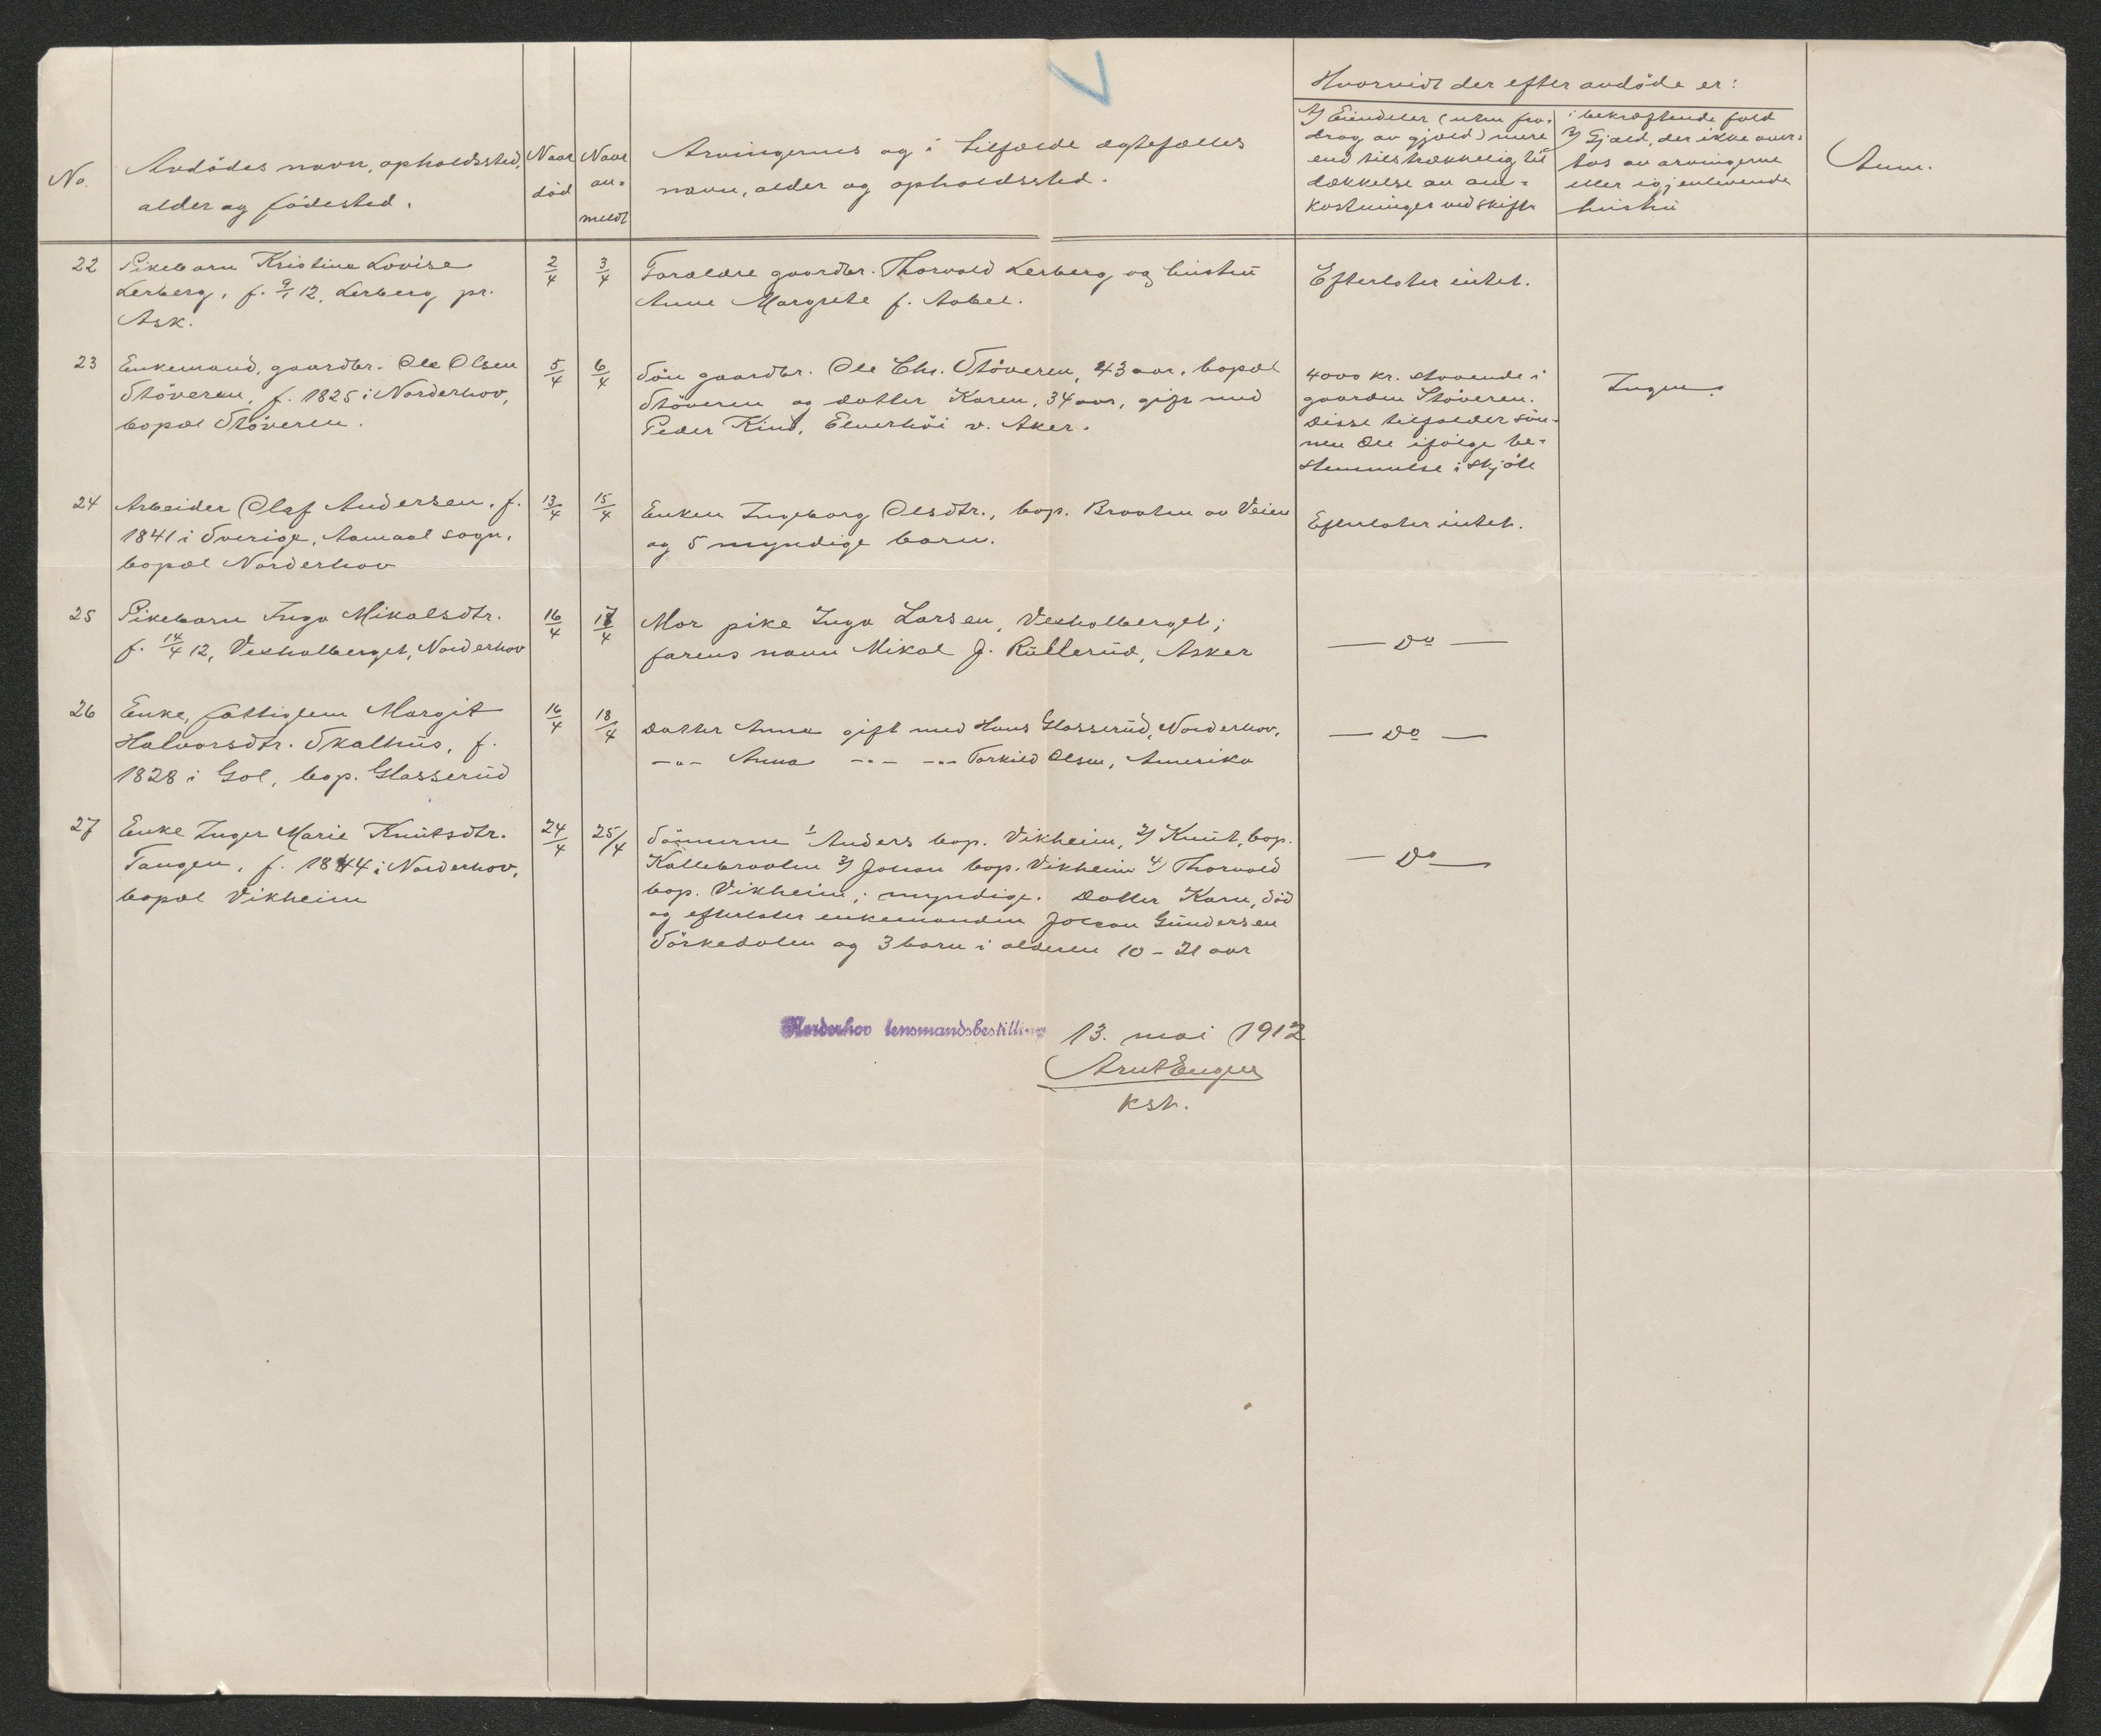 Hvorvidt der efter avdöde er:
No.
Avdödes navn, opholdssted,
alder og födested.
Naar
död
Naar
an-
meldt
Arvingernes og i tilfælde ægtefælles
navn, alder og opholdssted.
1) Eiendeler (uten fra-
drag av gjæld) mere
end tilstrækkelig til
dækkelse av om-
kostninger ved skifte
i bekræftende fald
2) Gjæld, der ikke over-
tas av arvingerne
eller igjenlevende
hustru
Anm.
22
Pikebarn Kristine Lovise
Lerberg, f. 9/1 12, Lerberg pr.
Ask.
2/4
3/4
Forældre gaardbr. Thorvald Lerberg og hustru
Anne Margrete f. Aabel.
Efterlater intet.
23
Enkemand, gaardbr. Ole Olsen
Stöveren, f. 1825 i Norderhov,
bopæl Stöveren.
5/4
6/4
Sön gaardbr. Ole Chr. Stöveren, 43 aar, bopæl
Stöveren og datter Karen, 34 aar, gift med
Peder Kind, Elverhöi v. Aker.
4000 kr. staaende i
gaarden Stöveren.
Disse tilfalder sön-
nen Ole ifölge be-
stemmelse i skjöte
Ingen.
24
Arbeider Olaf Andersen, f.
1841 i Sverige, Aamaal sogn,
bopæl Norderhov
13/4
15/4
Enken Ingeborg Olsdtr., bop. Braaten av Veien
og 5 myndige barn.
Efterlater intet.
25
Pikebarn Inga Mikalsdtr.
f. 14/4 12, Vesholberget, Norderhov
16/4
17/4
Mor pike Inga Larsen, Vesholberget;
farens navn Mikal J. Rülleriid, Asker
— Do —
26
Enke, fattiglem Margit
Halvorsdtr. Skalhus, f.
1828 i Gol, bop. Glasserud
16/4
18/4
Datter Anne gift med Hans Glasserud, Norderhov,
-"- Anna -"- -"- Torkild Olsen, Amerika
— Do —
27
Enke Inger Marie Knutsdtr.
Tangen, f. 1844 i Norderhov,
bopæl Vikheim
24/4
25/4
Sönnerne 1) Anders bop. Vikheim, 2) Knut, bop.
Kollebraaten 3) Johan bop. Vikheim 4) Thorvald
bop. Vikheim; myndige. Datter Karen, död
og efterlater enkemanden Johan Gundersen
Sörkedalen og 3 barn i alderen 10 - 21 aar
— Do —
Norderhov lensmandsbestilling 13. mai 1912
Arnt Enger
kst.